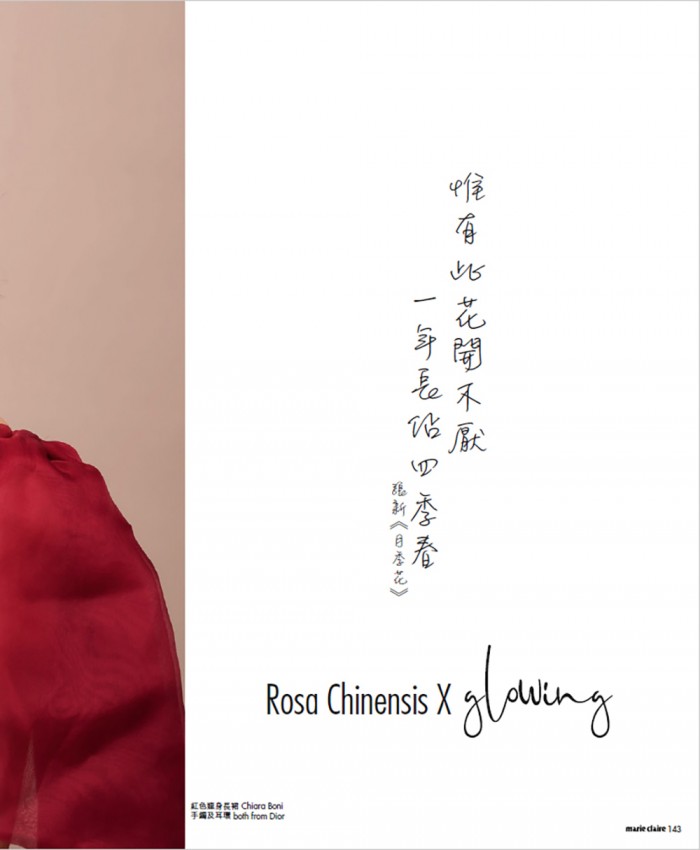 惟有此花開不厭
一年長佔四季春
張新《月季花》
Rosa Chinensis X glowing
紅色連身長裙 Chiara Boni
手鐲及耳環 both from Dior
marie claire 143